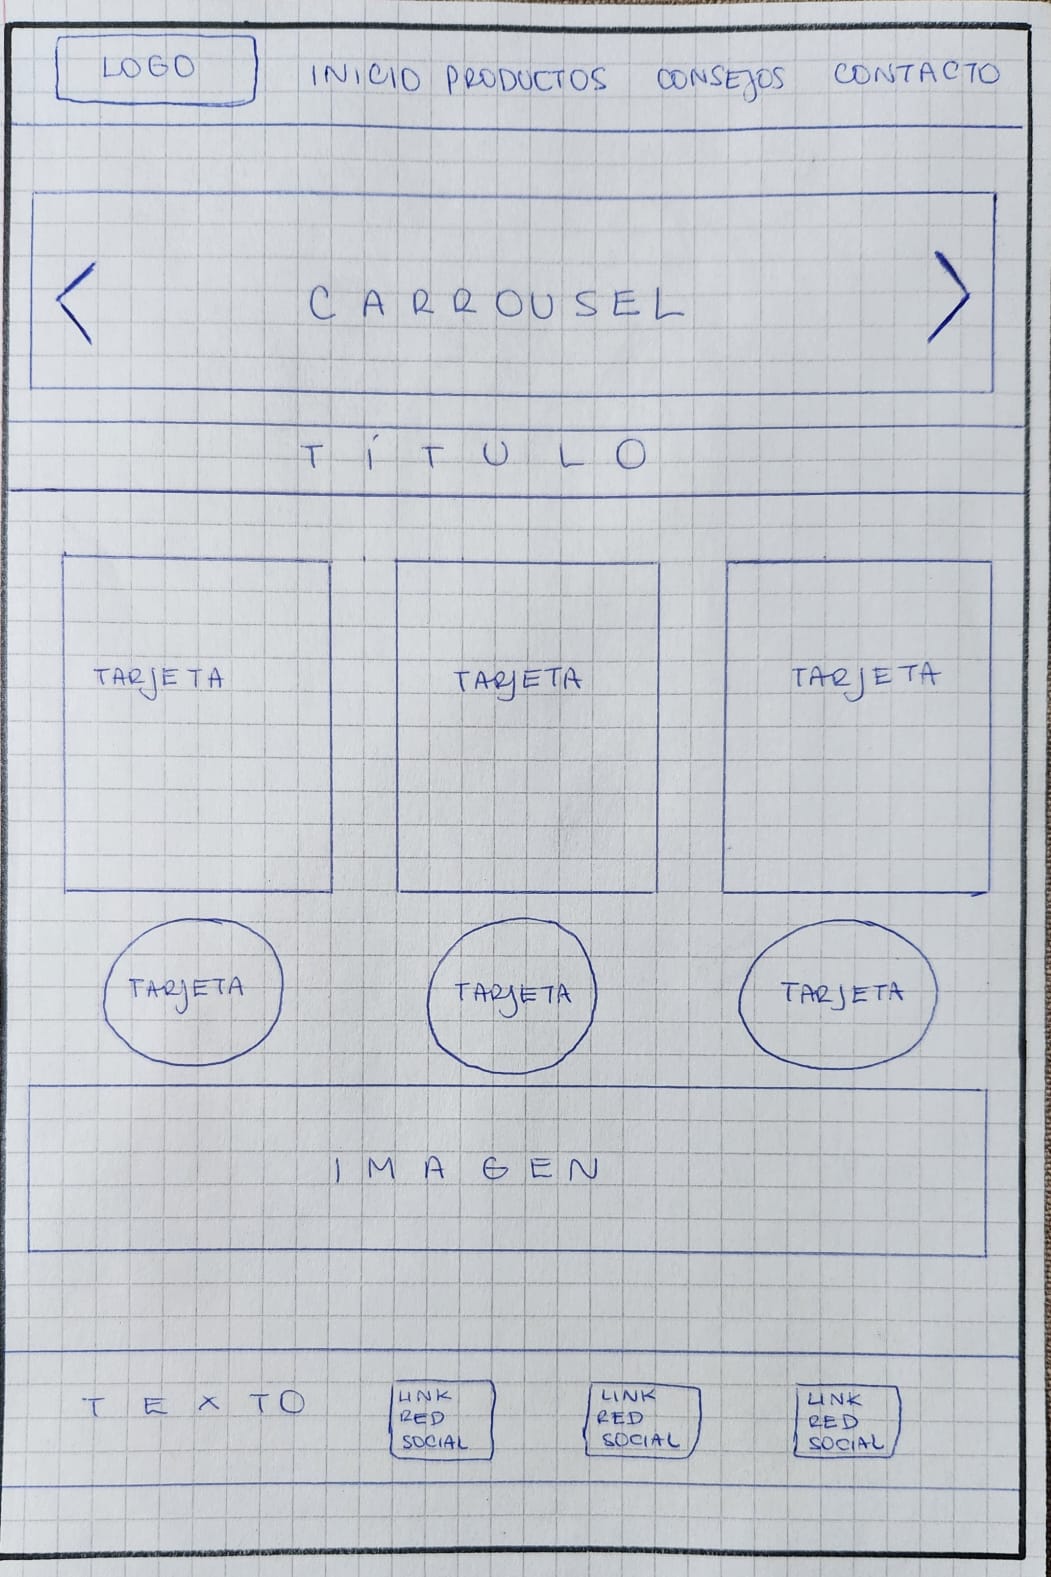 LOGO
INICIO PRODUCTOS CONSEJOS CONTACTO
< CARROUSEL >
TÍTULO
TARJETA TARJETA TARJETA
TARJETA TARJETA TARJETA
IMAGEN
TEXTO
LINK
RED
SOCIAL
LINK
RED
SOCIAL
LINK
RED
SOCIAL